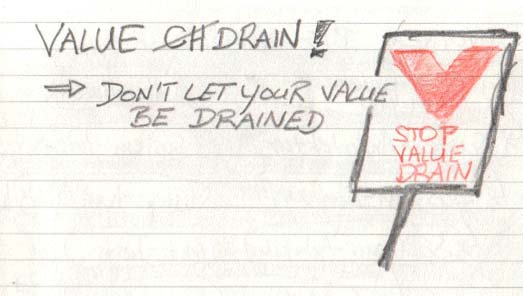 VALUE CH DRAIN!
⇒ DON'T LET YOUR VALUE
BE DRAINED
STOP
VALUE
DRAIN